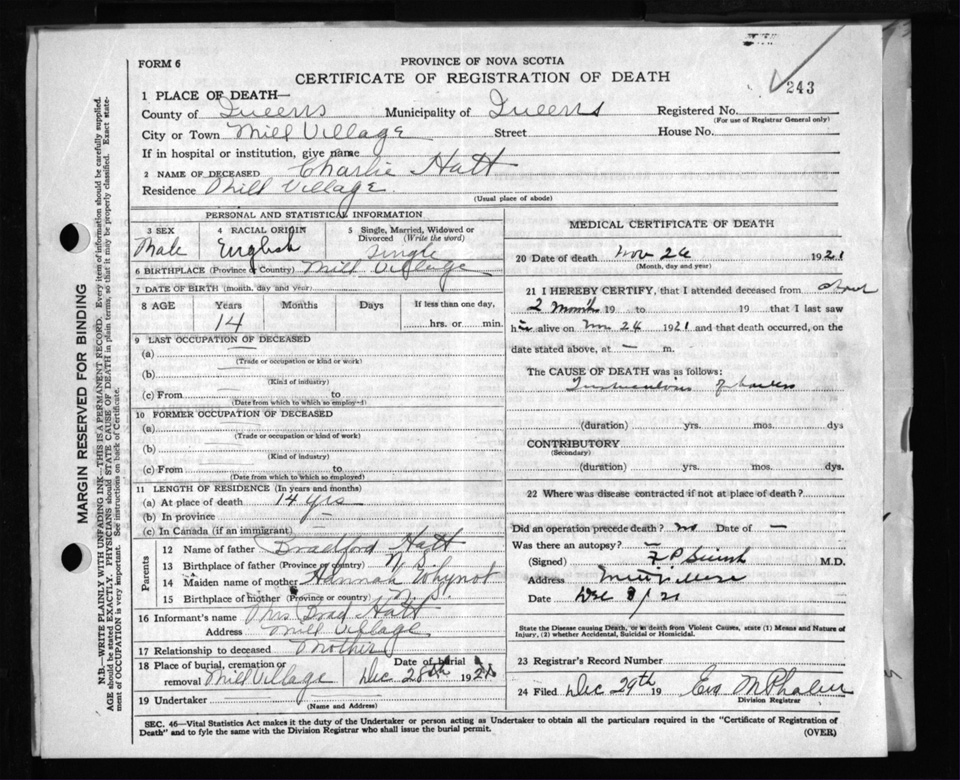 243
FORM 6
PROVINCE OF NOVA SCOTIA
CERTIFICATE OF REGISTRATION OF DEATH
1 PLACE OF DEATH—
County of Queens Municipality of Queens Registered No.
(For use of Registrar General only)
City or Town Mill Village Street House No.
If in hospital or institution, give name
2 NAME OF DECEASED Charlie Hatt
Residence Mill Village
(Usual place of abode)
PERSONAL AND STATISTICAL INFORMATION
3 SEX 4 RACIAL ORIGIN 5 Single, Married, Widowed or Divorced (Write the word)
Male English Single
6 BIRTHPLACE (Province or Country) Mill Village
7 DATE OF BIRTH (month, day and year)
8 AGE Years Months Days If less than one day,
14 hrs. or min.
9 LAST OCCUPATION OF DECEASED
(a)
(Trade or occupation or kind or work)
(b)
(Kind of industry)
(c) From to
(Date from which to which so employed)
10 FORMER OCCUPATION OF DECEASED
(a)
(Trade or occupation or kind of work)
(b)
(Kind of industry)
(c) From to
(Date from which to which so employed)
11 LENGTH OF RESIDENCE (In years and months)
(a) At place of death 14 yrs
(b) In province
(c) In Canada (if an immigrant)
Parents
12 Name of father Bradford Hatt
13 Birthplace of father (Province or country) N.S.
14 Maiden name of mother Hannah Whynot
15 Birthplace of mother (Province or country)
16 Informant's name Mrs Brad Hatt
Address Mill Village
17 Relationship to deceased Mother
18 Place of burial, cremation or removal Mill Village Date of burial Dec 28th 1921
19 Undertaker
(Name and Address)
MEDICAL CERTIFICATE OF DEATH
20 Date of death Nov 26 1921
(Month, day and year)
21 I HEREBY CERTIFY, that I attended deceased from about
2 Month 19 to 19 that I last saw
him alive on Nov 24 1921 and that death occurred, on the
date stated above, at — m.
The CAUSE OF DEATH was as follows:
(duration) yrs. mos. dys
CONTRIBUTORY
(Secondary)
(duration) yrs. mos. dys.
22 Where was disease contracted if not at place of death?
Did an operation precede death? no Date of —
Was there an autopsy? —
(Signed) M.D.
Address
Date Dec 21
State the Disease causing Death, or in death from Violent Causes, state (1) Means and Nature of
Injury, (2) whether Accidental, Suicidal or Homicidal.
23 Registrar's Record Number
24 Filed Dec 29th 19
Division Registrar
SEC. 46—Vital Statistics Act makes it the duty of the Undertaker or person acting as Undertaker to obtain all the particulars required in the "Certificate of Registration of
Death" and to fyle the same with the Division Registrar who shall issue the burial permit.
(OVER)
MARGIN RESERVED FOR BINDING
N.B.—WRITE PLAINLY WITH UNFADING INK—THIS IS A PERMANENT RECORD. Every item of information should be carefully supplied.
AGE should be stated EXACTLY. PHYSICIANS should STATE CAUSE OF DEATH in plain terms, so that it may be properly classified. Exact statement of OCCUPATION is very important. See instructions on back of Certificate.